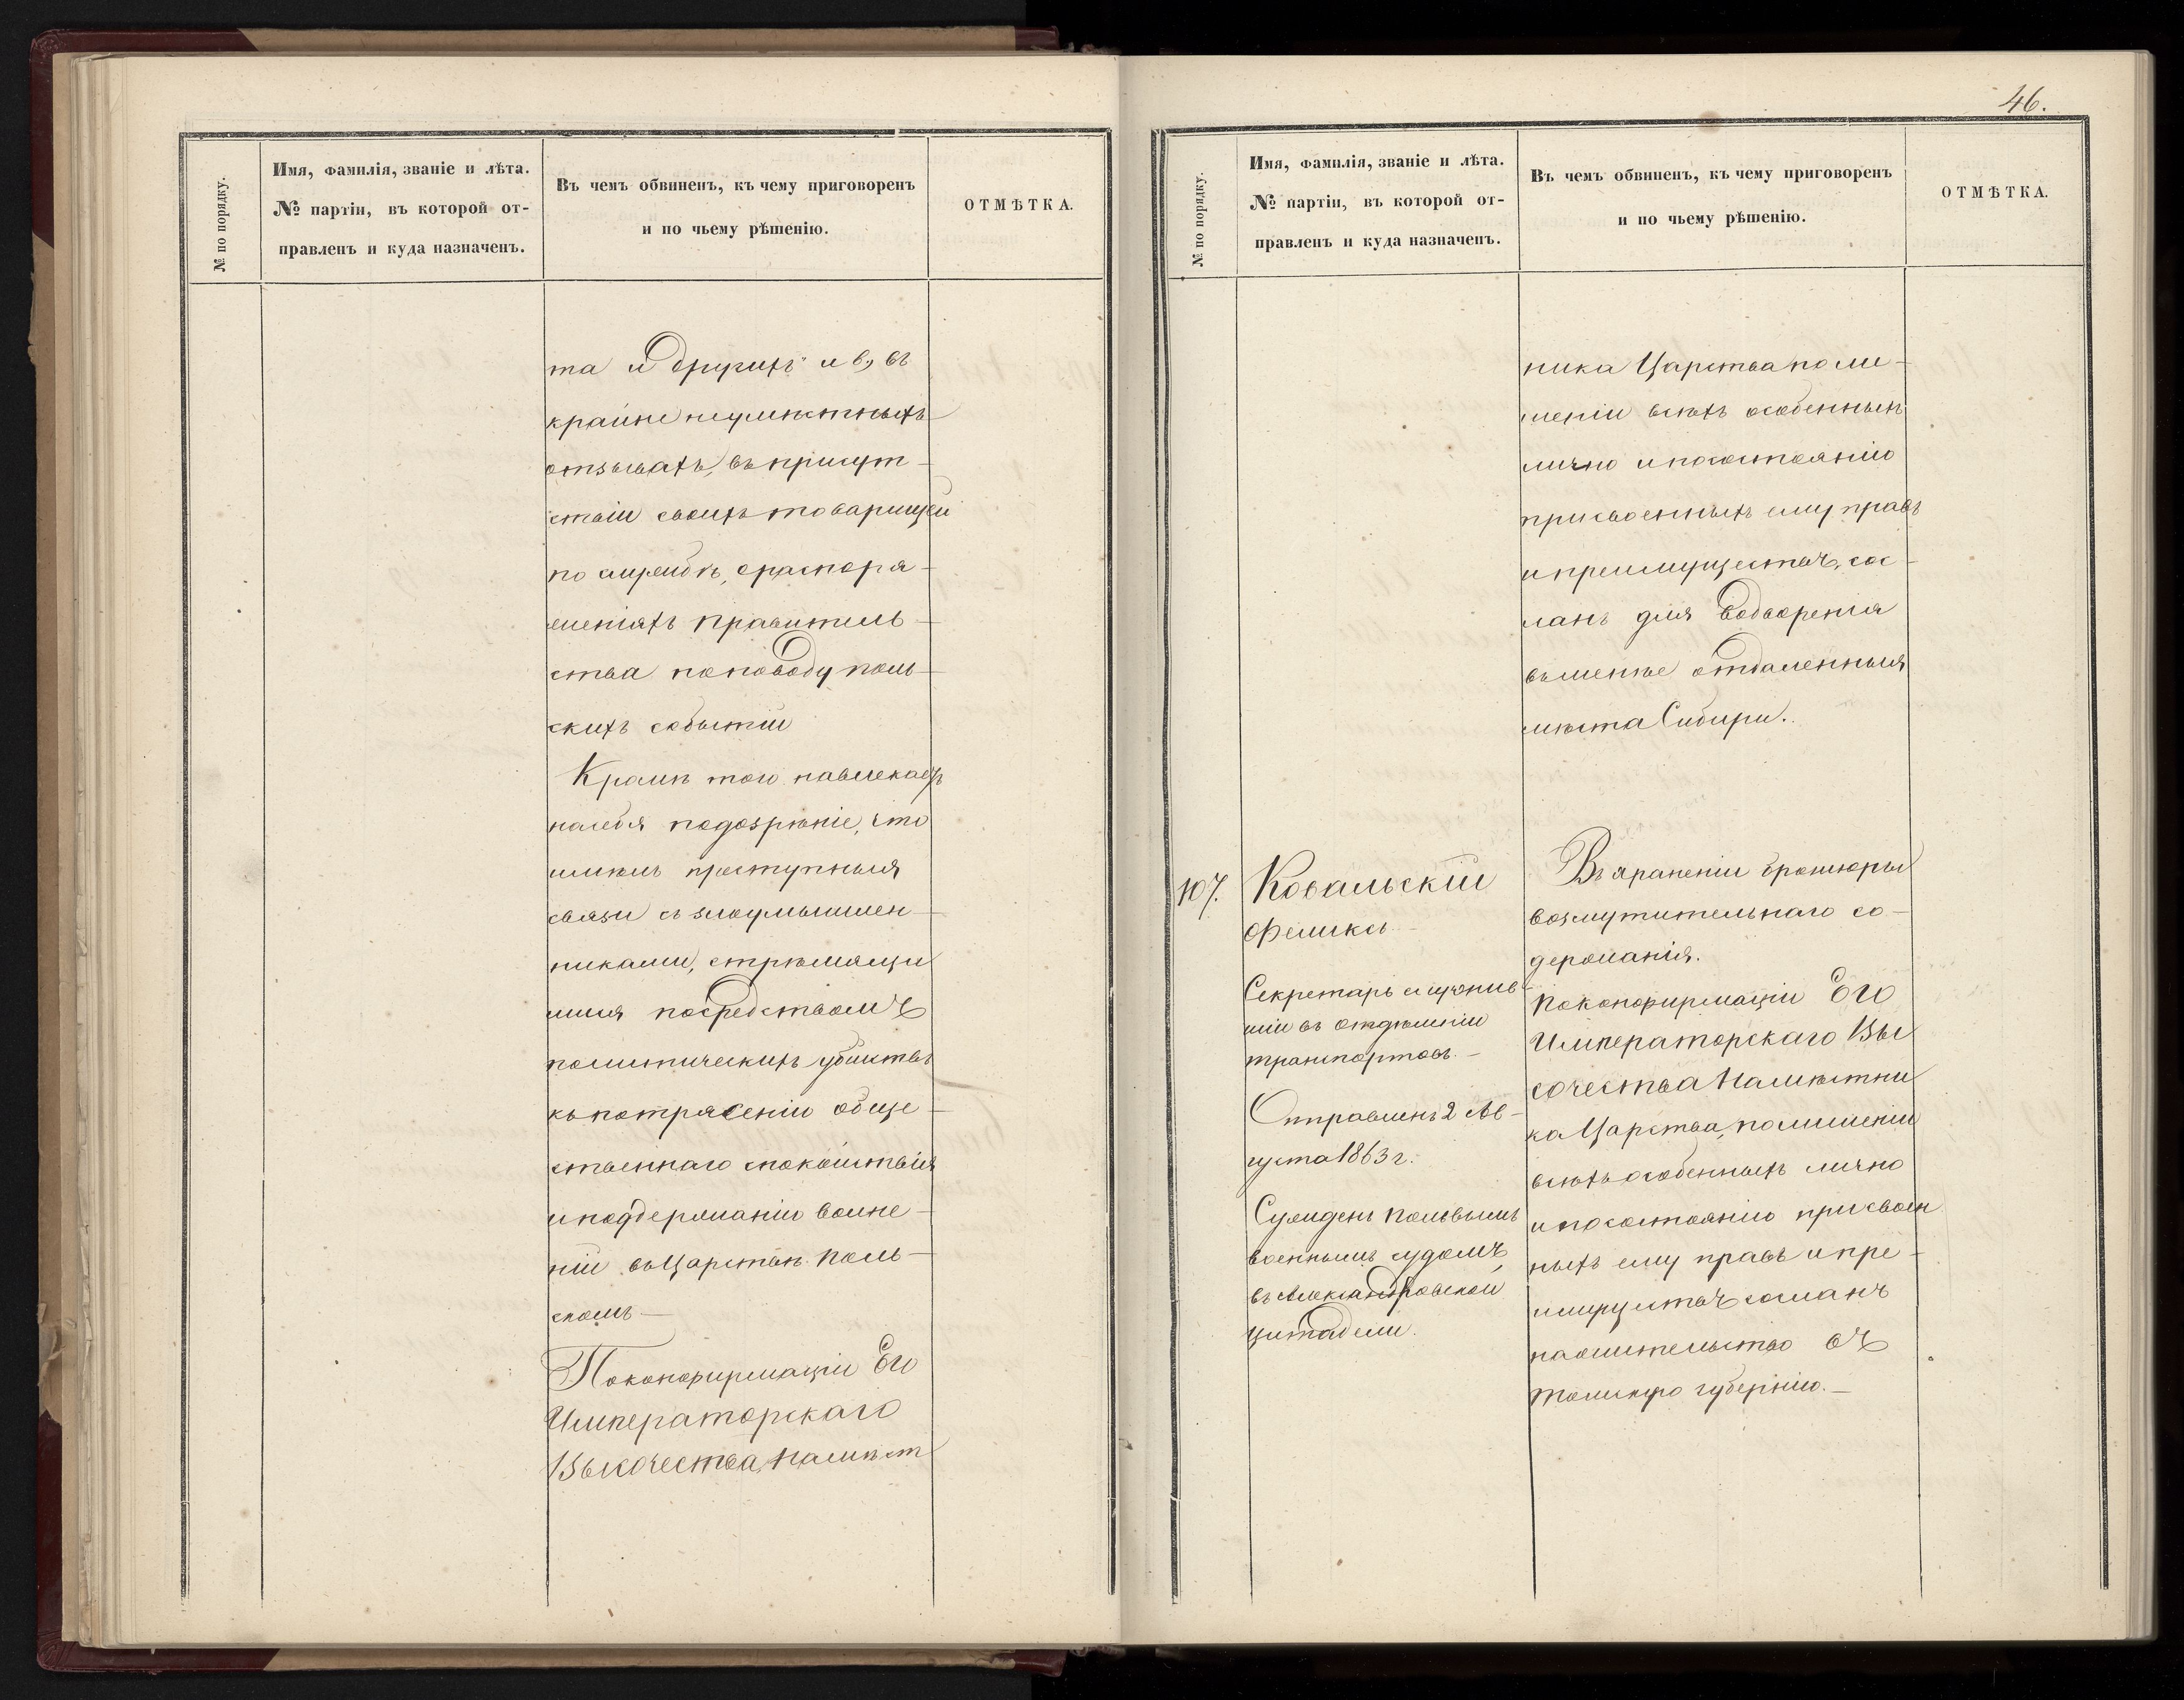 № по порядку.
Имя, фамилія, званіе и лѣта.
№ партіи, въ которой от-
правленъ и куда назначенъ.
Въ чемъ обвиненъ, къ чему приговоренъ
и по чьему рѣшенію.
ОТМѢТКА.
та и другихъ и в, въ
крайне неумѣстныхъ
отзывахъ, въ присут-
ствіи своихъ товарищей
по службѣ, о распоря-
женіяхъ Правитель-
ства по поводу поль-
скихъ событій
Кромѣ того навлекаетъ
на себя подозрѣніе, что
имѣлъ преступныя
связи съ злоумышлен-
никами, стрѣмящи
мися посредствомъ
политическихъ убійствъ
къ потрясенію обще-
ственнаго спокойствія
и поддержанію волне-
ній въ Царствѣ Поль-
скомъ —
По конфирмаціи Его
Императорскаго
Высочества, Намѣст
46.
№ по порядку.
Имя, фамилія, званіе и лѣта.
№ партіи, въ которой от-
правленъ и куда назначенъ.
Въ чемъ обвиненъ, къ чему приговоренъ
и по чьему рѣшенію.
ОТМѢТКА.
ника Царства по ли-
шеніи всѣхъ особенныхъ
лично и по состоянію
присвоенныхъ ему правъ
и преимуществъ, сос-
ланъ для водворенія
въ менѣе отдаленныя
мѣста Сибири.
107.
Ковальскій
Феликсъ
Секретарь служив-
шій въ отдѣленіи
транспортовъ. —
Отправленъ 2 Ав-
густа 1863 г.
Сужденъ полевымъ
военнымъ судомъ,
въ Александровской
цитадели.
Въ храненіи брошюры
возмутительнаго со-
держанія.
По конфирмаціи Его
Императорскаго Вы
сочества Намѣстни
ка Царства, по лишеніи
всѣхъ особенныхъ лично
и по состоянію присвоен
ныхъ ему правъ и пре-
имуществъ сосланъ
на жительство въ
Томскую губернію. —